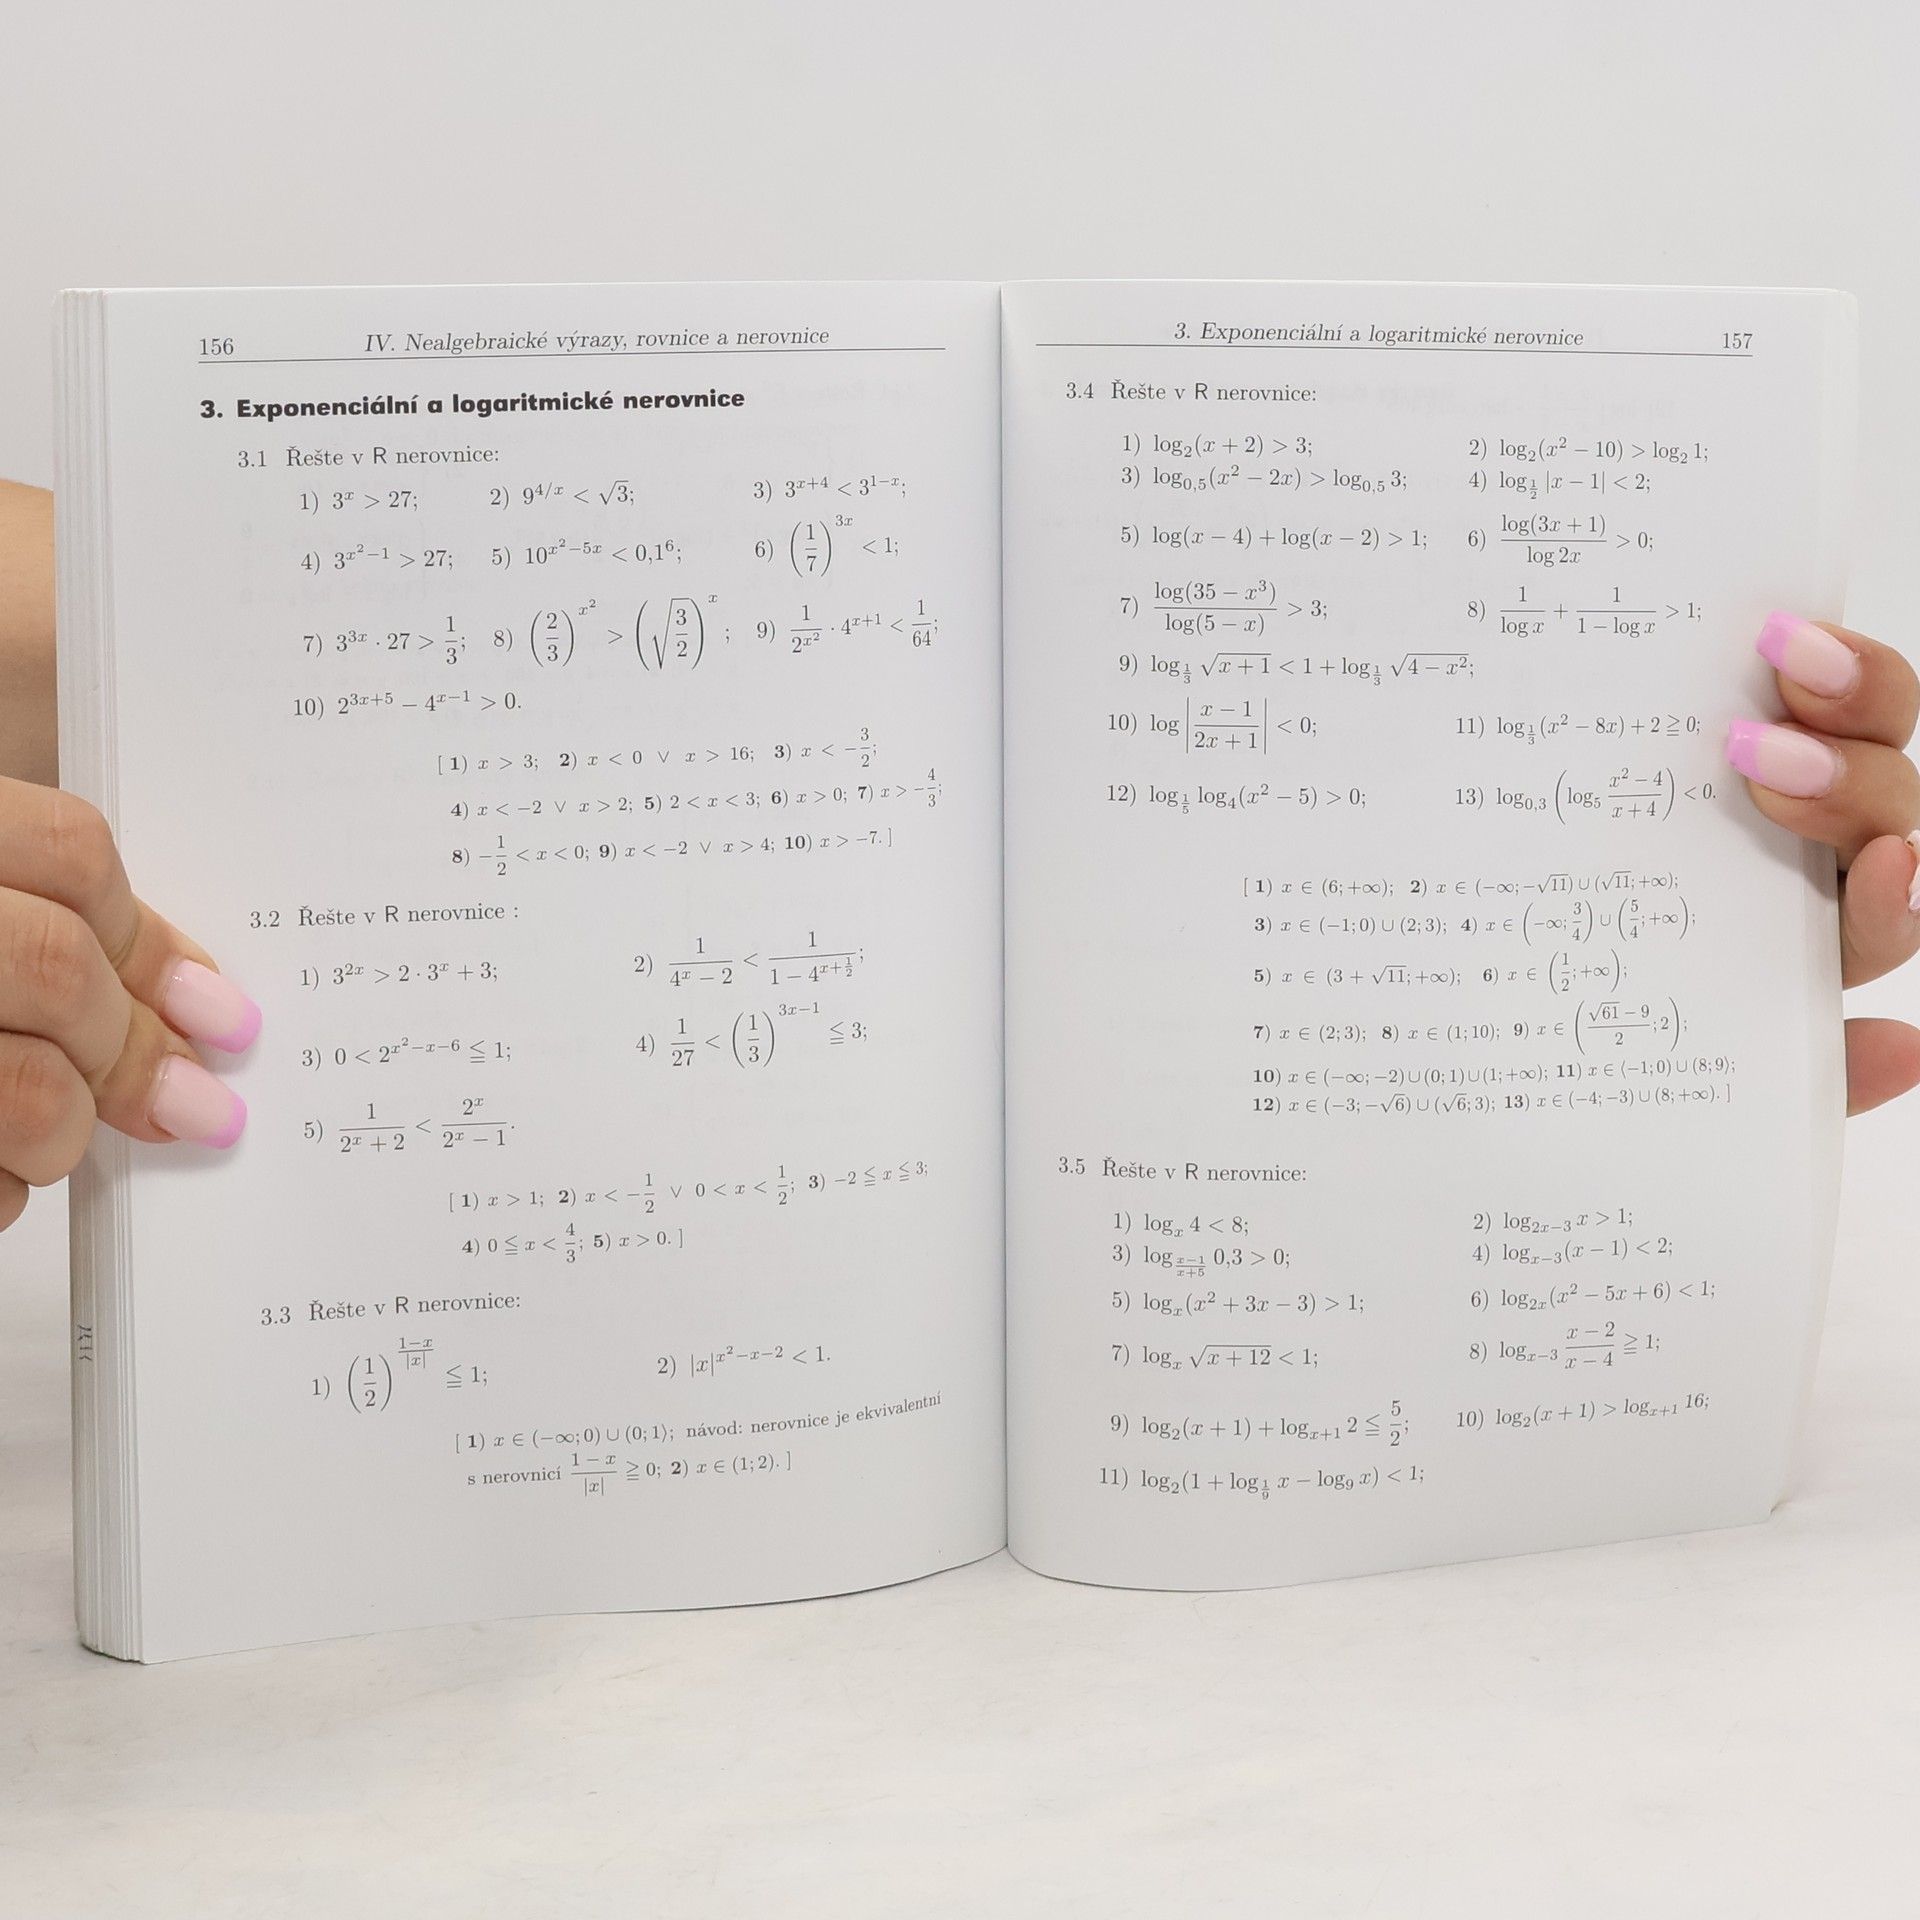 156 IV. Nealgebraické výrazy, rovnice a nerovnice
3. Exponenciální a logaritmické nerovnice
3.1 Řešte v R nerovnice:
1) 3^x > 27; 2) 9^{4/x} < √3; 3) 3^{x+4} < 3^{1−x};
4) 3^{x^2−1} > 27; 5) 10^{x^2−5x} < 0,1^6; 6) (1/7)^{3x} < 1;
7) 3^{3x} · 27 > 1/3; 8) (2/3)^{x^2} > (√(3/2))^x; 9) 1/2^{x^2} · 4^{x+1} < 1/64;
10) 2^{3x+5} − 4^{x−1} > 0.
[ 1) x > 3; 2) x < 0 ∨ x > 16; 3) x < −3/2;
4) x < −2 ∨ x > 2; 5) 2 < x < 3; 6) x > 0; 7) x > −4/3;
8) −1/2 < x < 0; 9) x < −2 ∨ x > 4; 10) x > −7. ]
3.2 Řešte v R nerovnice :
1) 3^{2x} > 2 · 3^x + 3; 2) 1/(4^x − 2) < 1/(1 − 4^{x+1/2});
3) 0 < 2^{x^2−x−6} ≦ 1; 4) 1/27 < (1/3)^{3x−1} ≦ 3;
5) 1/(2^x + 2) < 2^x/(2^x − 1).
[ 1) x > 1; 2) x < −1/2 ∨ 0 < x < 1/2; 3) −2 ≦ x ≦ 3;
4) 0 ≦ x < 4/3; 5) x > 0. ]
3.3 Řešte v R nerovnice:
1) (1/2)^{(1−x)/|x|} ≦ 1; 2) |x|^{x^2−x−2} < 1.
[ 1) x ∈ (−∞; 0) ∪ (0; 1⟩; návod: nerovnice je ekvivalentní
s nerovnicí (1 − x)/|x| ≧ 0; 2) x ∈ (1; 2). ]
3. Exponenciální a logaritmické nerovnice 157
3.4 Řešte v R nerovnice:
1) log_2(x + 2) > 3; 2) log_2(x^2 − 10) > log_2 1;
3) log_{0,5}(x^2 − 2x) > log_{0,5} 3; 4) log_{1/2} |x − 1| < 2;
5) log(x − 4) + log(x − 2) > 1; 6) log(3x + 1)/log 2x > 0;
7) log(35 − x^3)/log(5 − x) > 3; 8) 1/log x + 1/(1 − log x) > 1;
9) log_{1/3} √(x + 1) < 1 + log_{1/3} √(4 − x^2);
10) log |(x − 1)/(2x + 1)| < 0; 11) log_{1/3}(x^2 − 8x) + 2 ≧ 0;
12) log_{1/5} log_4(x^2 − 5) > 0; 13) log_{0,3} (log_5 (x^2 − 4)/(x + 4)) < 0.
[ 1) x ∈ (6; +∞); 2) x ∈ (−∞; −√11) ∪ (√11; +∞);
3) x ∈ (−1; 0) ∪ (2; 3); 4) x ∈ (−∞; 3/4) ∪ (5/4; +∞);
5) x ∈ (3 + √11; +∞); 6) x ∈ (1/2; +∞);
7) x ∈ (2; 3); 8) x ∈ (1; 10); 9) x ∈ ((√61 − 9)/2; 2);
10) x ∈ (−∞; −2) ∪ (0; 1) ∪ (1; +∞); 11) x ∈ ⟨−1; 0) ∪ (8; 9⟩;
12) x ∈ (−3; −√6) ∪ (√6; 3); 13) x ∈ (−4; −3) ∪ (8; +∞). ]
3.5 Řešte v R nerovnice:
1) log_x 4 < 8; 2) log_{2x−3} x > 1;
3) log_{(x−1)/(x+5)} 0,3 > 0; 4) log_{x−3}(x − 1) < 2;
5) log_x(x^2 + 3x − 3) > 1; 6) log_{2x}(x^2 − 5x + 6) < 1;
7) log_x √(x + 12) < 1; 8) log_{x−3} (x − 2)/(x − 4) ≧ 1;
9) log_2(x + 1) + log_{x+1} 2 ≦ 5/2; 10) log_2(x + 1) > log_{x+1} 16;
11) log_2(1 + log_{1/9} x − log_9 x) < 1;